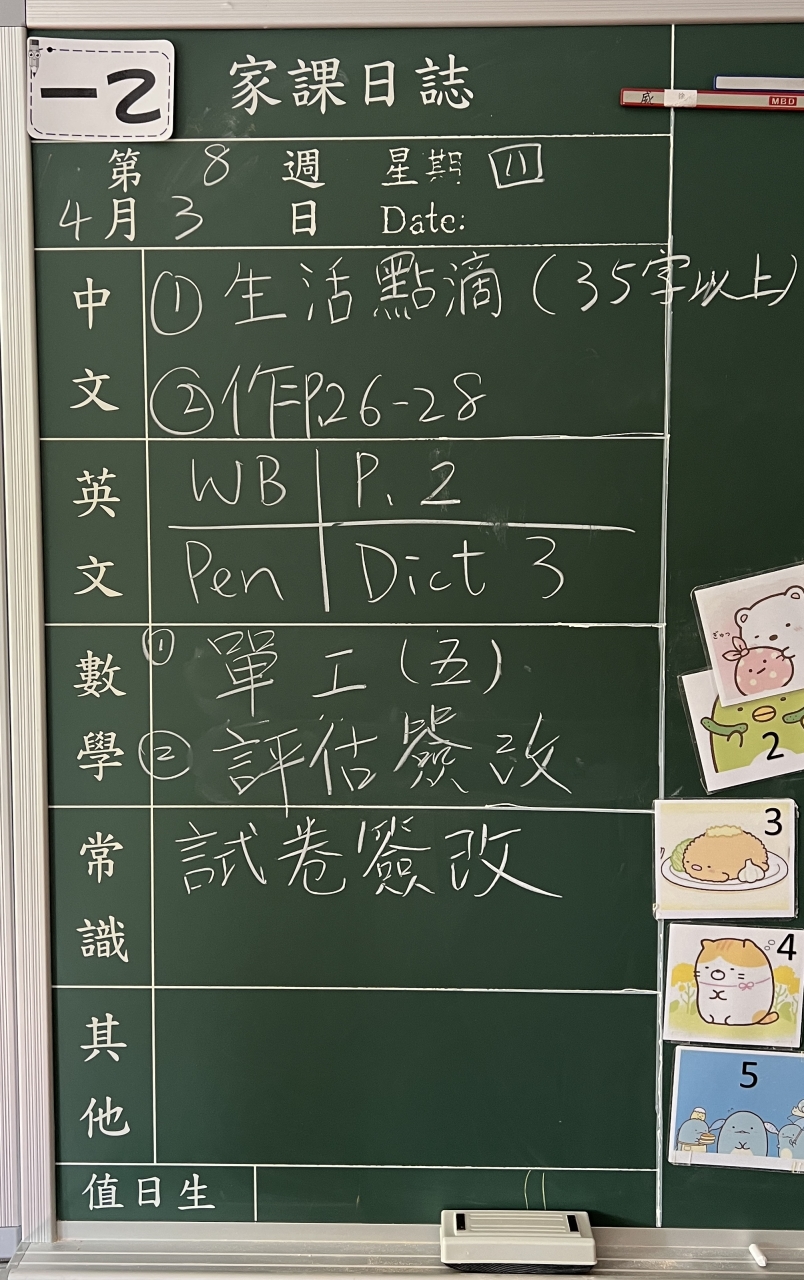 一乙
家課日誌
威
MBD
第 8 週 星期 四
4月 3 日 Date:
中文
① 生活點滴 (35字以上)
② 作P.26-28
英文
WB P. 2
Pen Dict 3
數學
① 單工(五)
② 評估簽改
常識
試卷簽改
其他
值日生
ぎゅっ
2
3
4
5